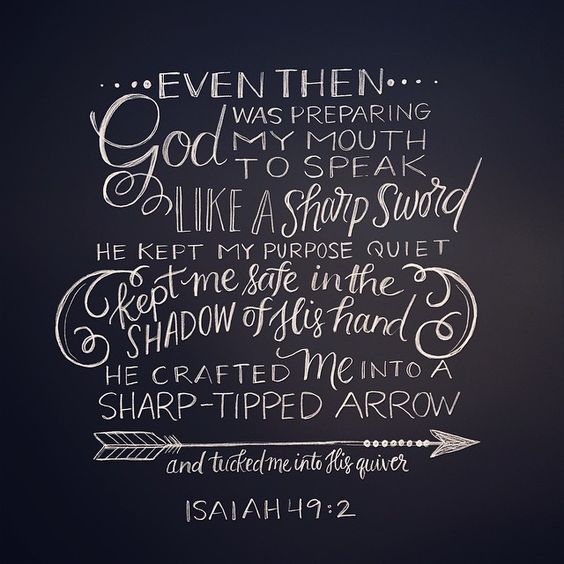 EVEN THEN
God WAS PREPARING
MY MOUTH
TO SPEAK
LIKE A Sharp Sword
HE KEPT MY PURPOSE QUIET
kept me safe in the
SHADOW of His hand
HE CRAFTED Me INTO A
SHARP-TIPPED ARROW
and tucked me into His quiver
ISAIAH 49:2